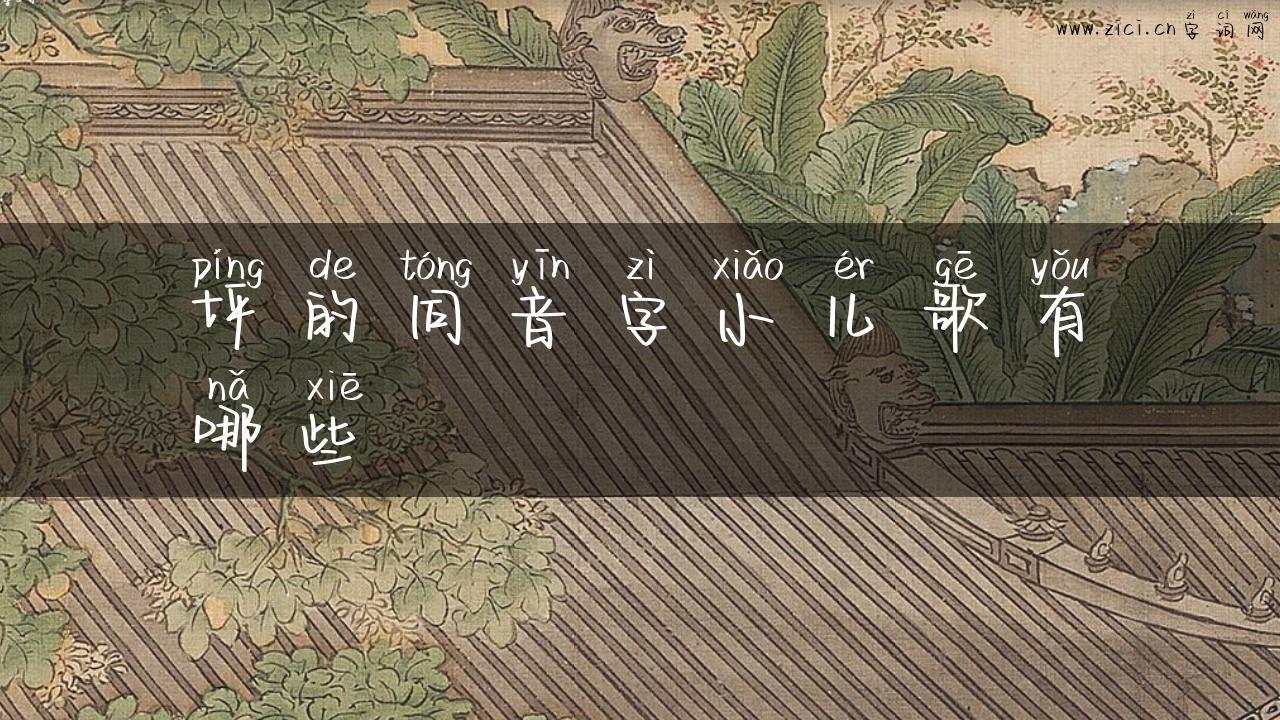 zì cí wǎng
www.zici.cn 字词网
píng de tóng yīn zì xiǎo ér gē yǒu
坪的同音字小儿歌有
nǎ xiē
哪些